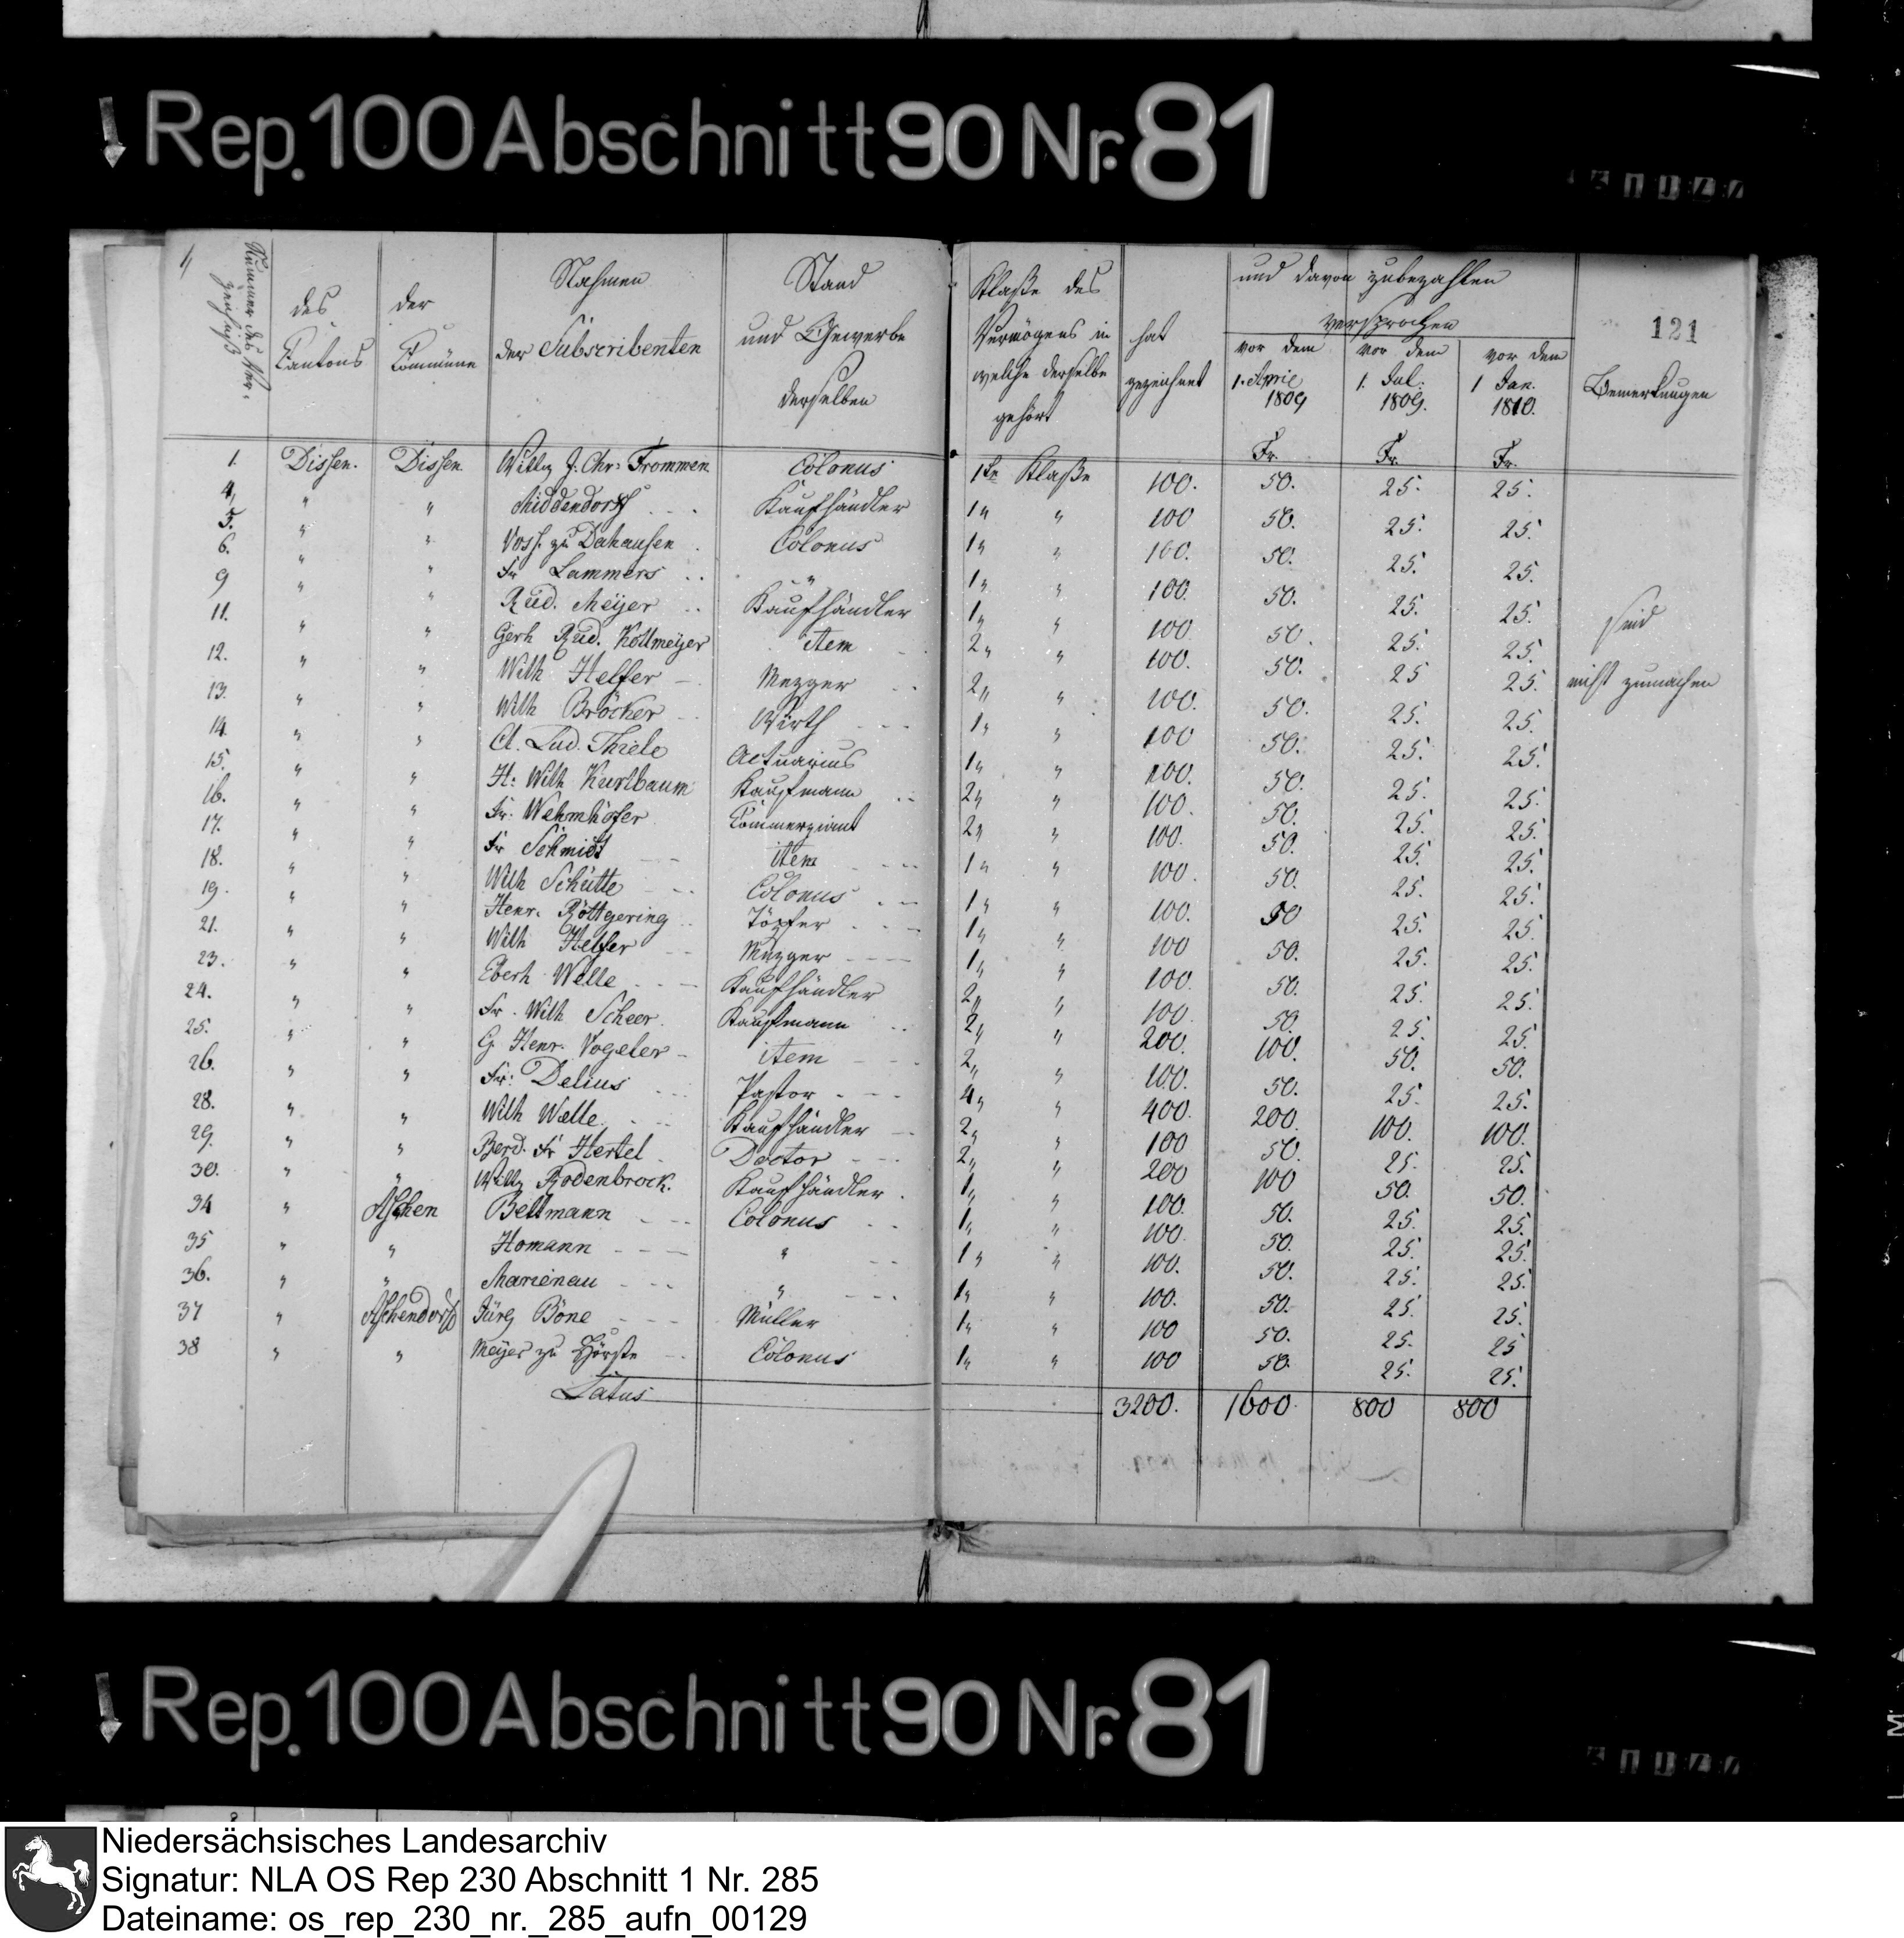 Rep. 100 Abschnitt 90 Nr. 81
Nummer des Ver-
zeichniß
des
Cantons
der
Commüne
Nahmen
der Subscribenten
Stand
und Gewerbe
derselben
Klaße des
Vermögens in
welche derselbe
gehört
hat
gezeichnet
und davon zubezahlen
versprochen
vor dem
1. April
1809
vor dem
1. Jul.
1809.
vor dem
1 Jan.
1810.
121
Bemerkungen
Fr. Fr. Fr.
1. Dissen. Dissen Wilhg J. Chr: Frommen Colonus 1te Klaße 100. 50. 25. 25.
4, " " Middendorff Kaufhändler 1 " " 100 50. 25. 25.
5. " " Voss. zu Dahausen Colonus 1 " " 100. 50. 25. 25.
6. " " Fr Lammers " 1 " " 100. 50. 25. 25.
9 " " Rud. Meijer Kaufhändler 1 " " 100 50. 25. 25.
11. " " Gerh Rud. Kollmeijer item 2 " " 100. 50. 25 25.
12. " " Wilh Helfer Mezger 2 " " 100. 50. 25. 25.
13. " " Wilh Bröcker Wirth 1 " " 100 50. 25. 25.
14. " " Cl. Lud. Thiele Actuarius 1 " " 100. 50. 25. 25.
15. " " H: Wilh Kurlbaum Kaufmann 2 " " 100. 50. 25. 25.
16. " " Fr. Wehmhöfer Commerziant 2 " " 100. 50. 25. 25.
17. " " Fr Schmidt item 1 " " 100. 50. 25. 25.
18. " " Wilh Schütte Colonus 1 " " 100. 50 25. 25.
19. " " Henr. Röttgering Töpfer 1 " " 100 50. 25. 25.
21. " " Wilh Helfer Mezger 1 " " 100. 50. 25. 25.
23. " " Eberh Welle Kaufhändler 2 " " 100. 50. 25. 25.
24. " " Fr. Wilh Scheer Kaufmann 2 " " 200. 100. 50. 50.
25. " " G. Henr. Vogeler item 2 " " 100. 50. 25. 25.
26. " " Fr: Delius Pastor 4 " " 400. 200. 100. 100.
28. " " Wilh Walle Kaufhändler 2 " " 100 50. 25. 25.
29. " " Berd. Fr Hertel Doctor 2 " " 200 100 50. 50.
30. " " Willg Rodenbrock. Kaufhändler 1 " " 100. 50. 25. 25.
34 " Aschen Bellmann Colonus 1 " " 100. 50. 25. 25.
35 " " Homann " 1 " " 100. 50. 25. 25.
36. " " Marienau " 1 " " 100. 50. 25. 25.
37 " Aschendorff Jürg Böne Müller 1 " " 100 50. 25. 25
38 " " Meijer zu Hörste Colonus 1 " " 100 50. 25. 25.
sind
nicht zumachen
Latus 3200. 1600. 800 800
Rep. 100 Abschnitt 90 Nr. 81
Niedersächsisches Landesarchiv
Signatur: NLA OS Rep 230 Abschnitt 1 Nr. 285
Dateiname: os_rep_230_nr._285_aufn_00129